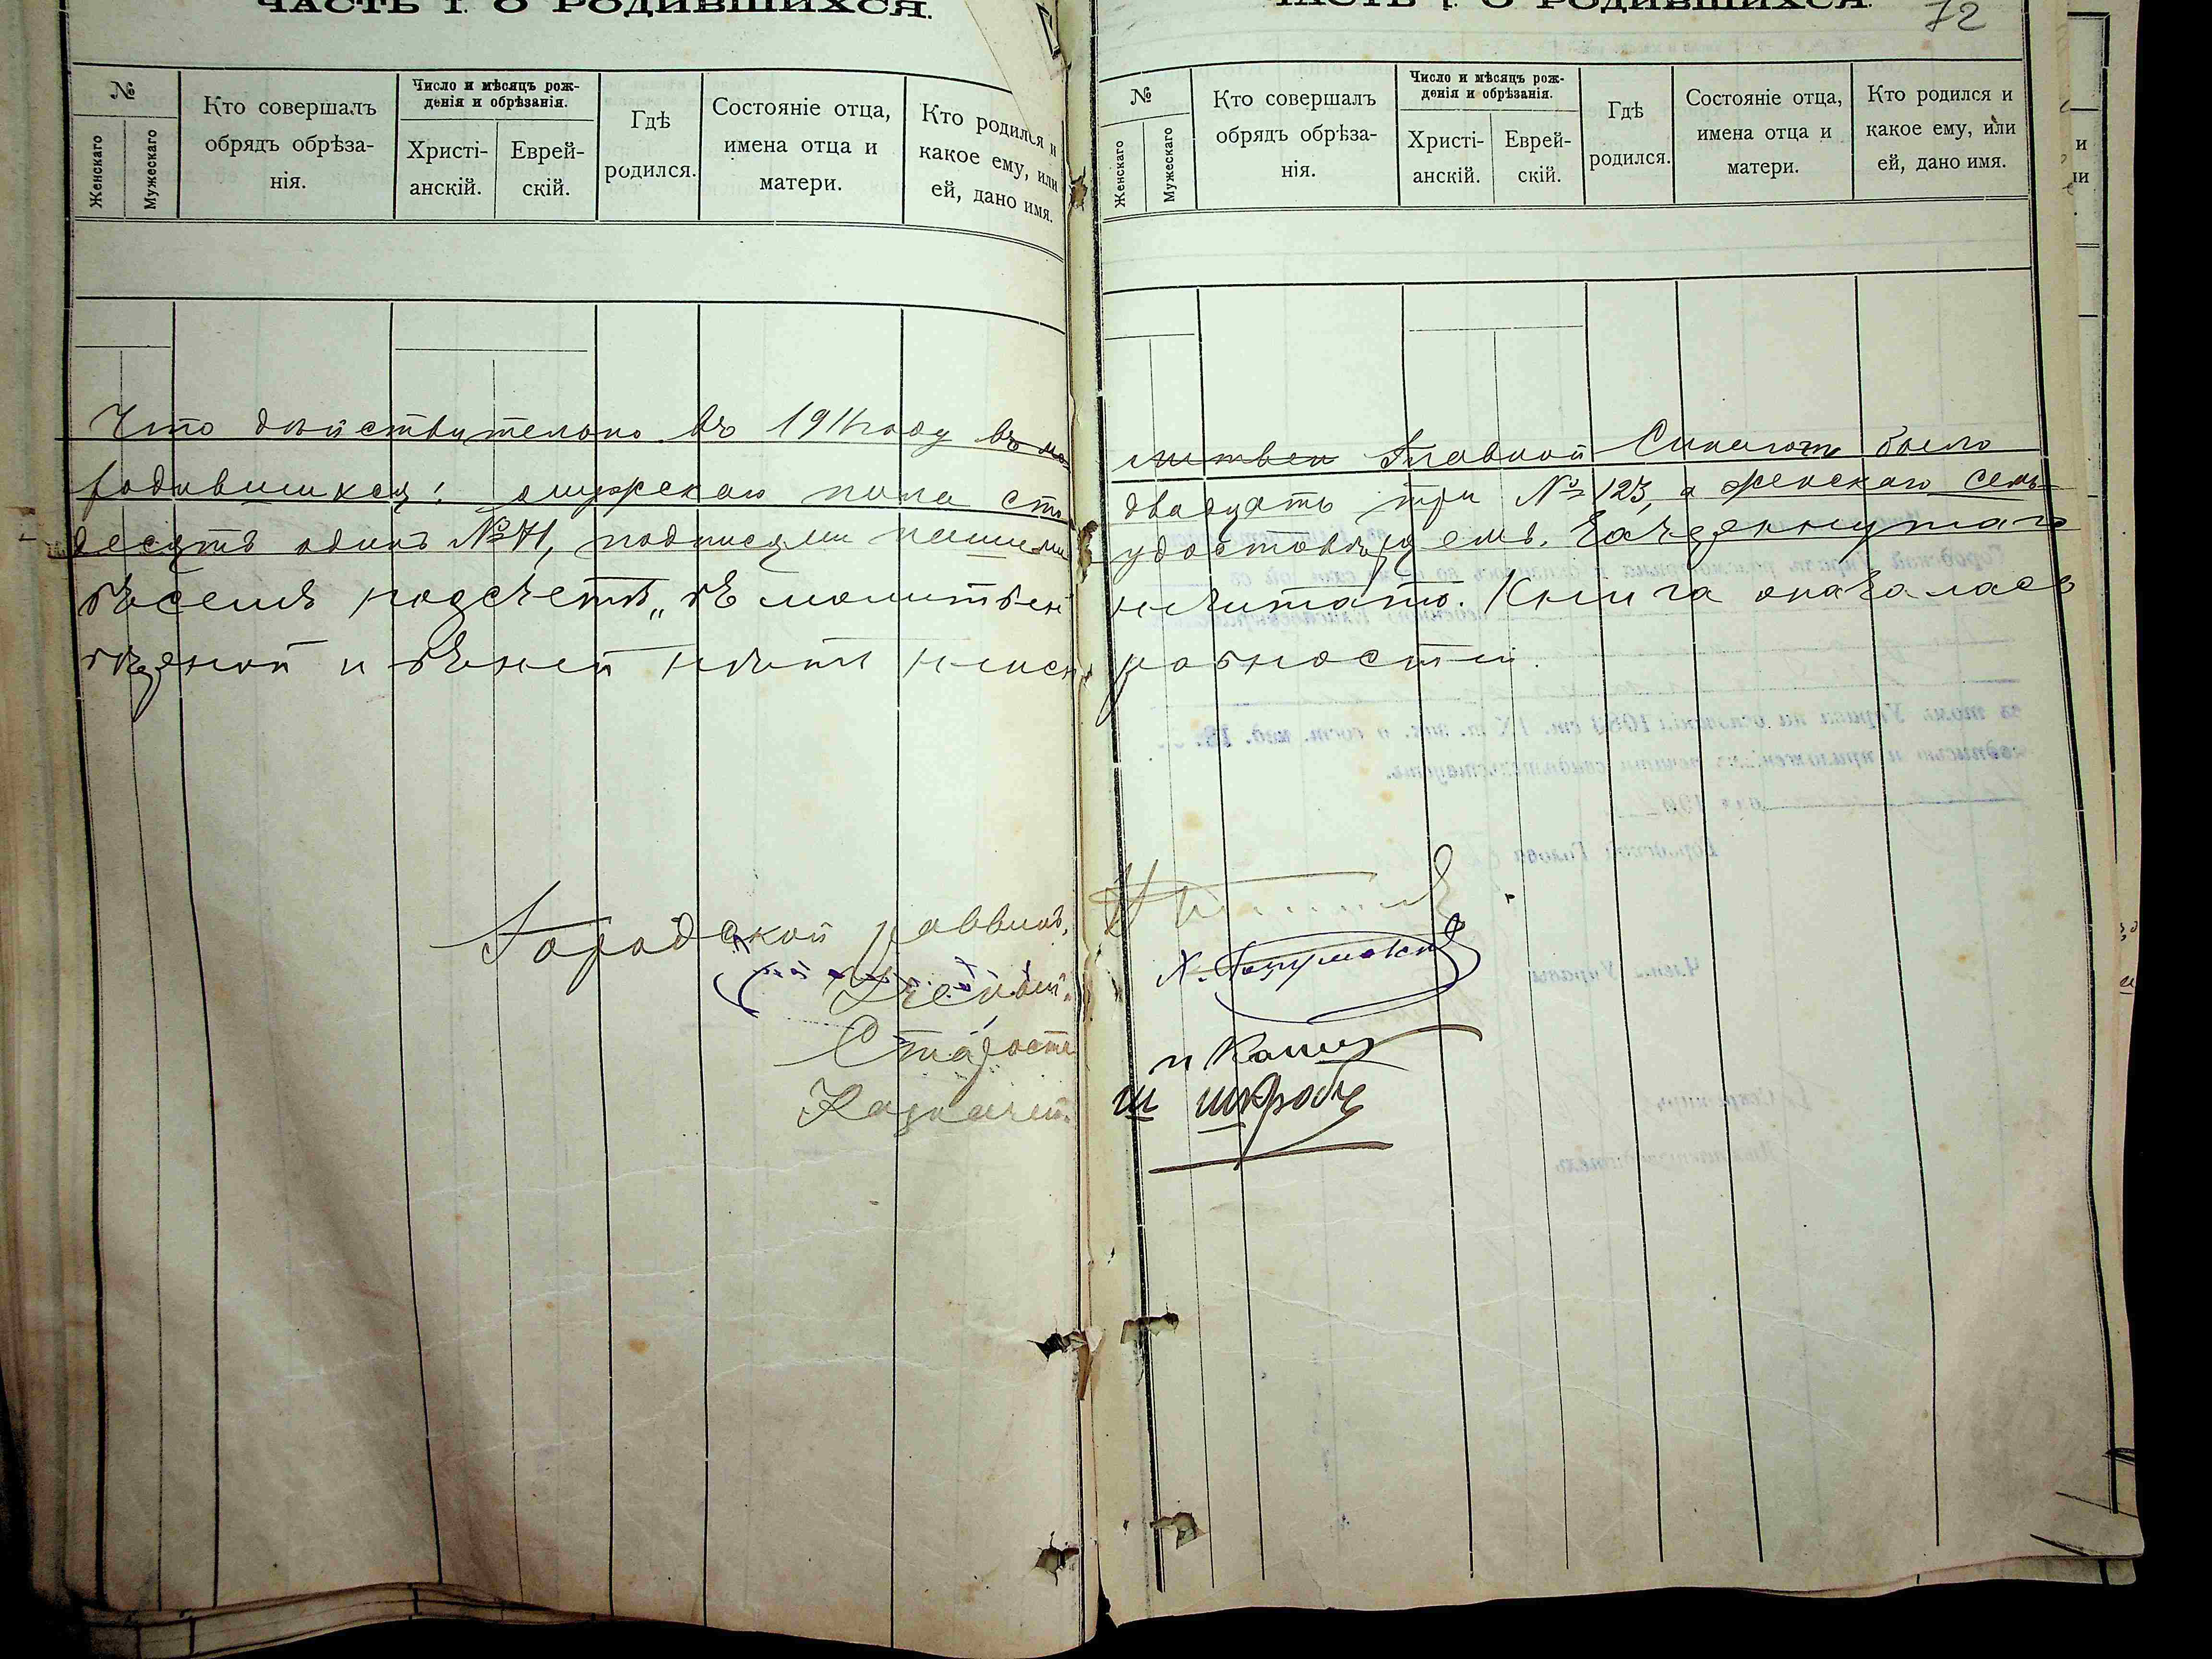 ЧАСТЬ I. О РОДИВШИХСЯ.
№
Женскаго
Мужескаго
Кто совершалъ
обрядъ обрѣза-
нія.
Число и мѣсяцъ рож-
денія и обрѣзанія.
Христі-
анскій.
Еврей-
скій.
Гдѣ
родился.
Состояніе отца,
имена отца и
матери.
Кто родился и
какое ему, или
ей, дано имя.
ЧАСТЬ I. О РОДИВШИХСЯ.
72
№
Женскаго
Мужескаго
Кто совершалъ
обрядъ обрѣза-
нія.
Число и мѣсяцъ рож-
денія и обрѣзанія.
Христі-
анскій.
Еврей-
скій.
Гдѣ
родился.
Состояніе отца,
имена отца и
матери.
Кто родился и
какое ему, или
ей, дано имя.
Что дѣйствительно въ 1911 году въ мо литвен Главной Синагогѣ было
родившихся: мужскаго пола сто двадцать три № 123, а женскаго семь-
десятъ одинъ № 71, подписями нашими удостовѣряемъ. Зачеркнутаго
въ семъ подсчетѣ „въ молитвен не читать. Книга оказалась
и въ ней нѣтъ неисправностей.
Городской раввинъ,
Ученый
Староста и Кацъ
Казначей Ш Шкробъ